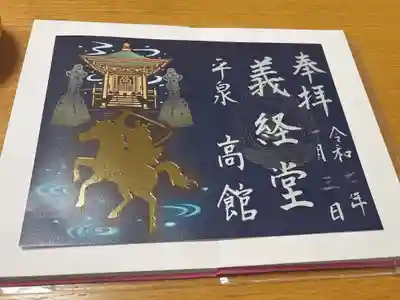 奉拝
令和二年
月三日
義経堂
平泉
高館